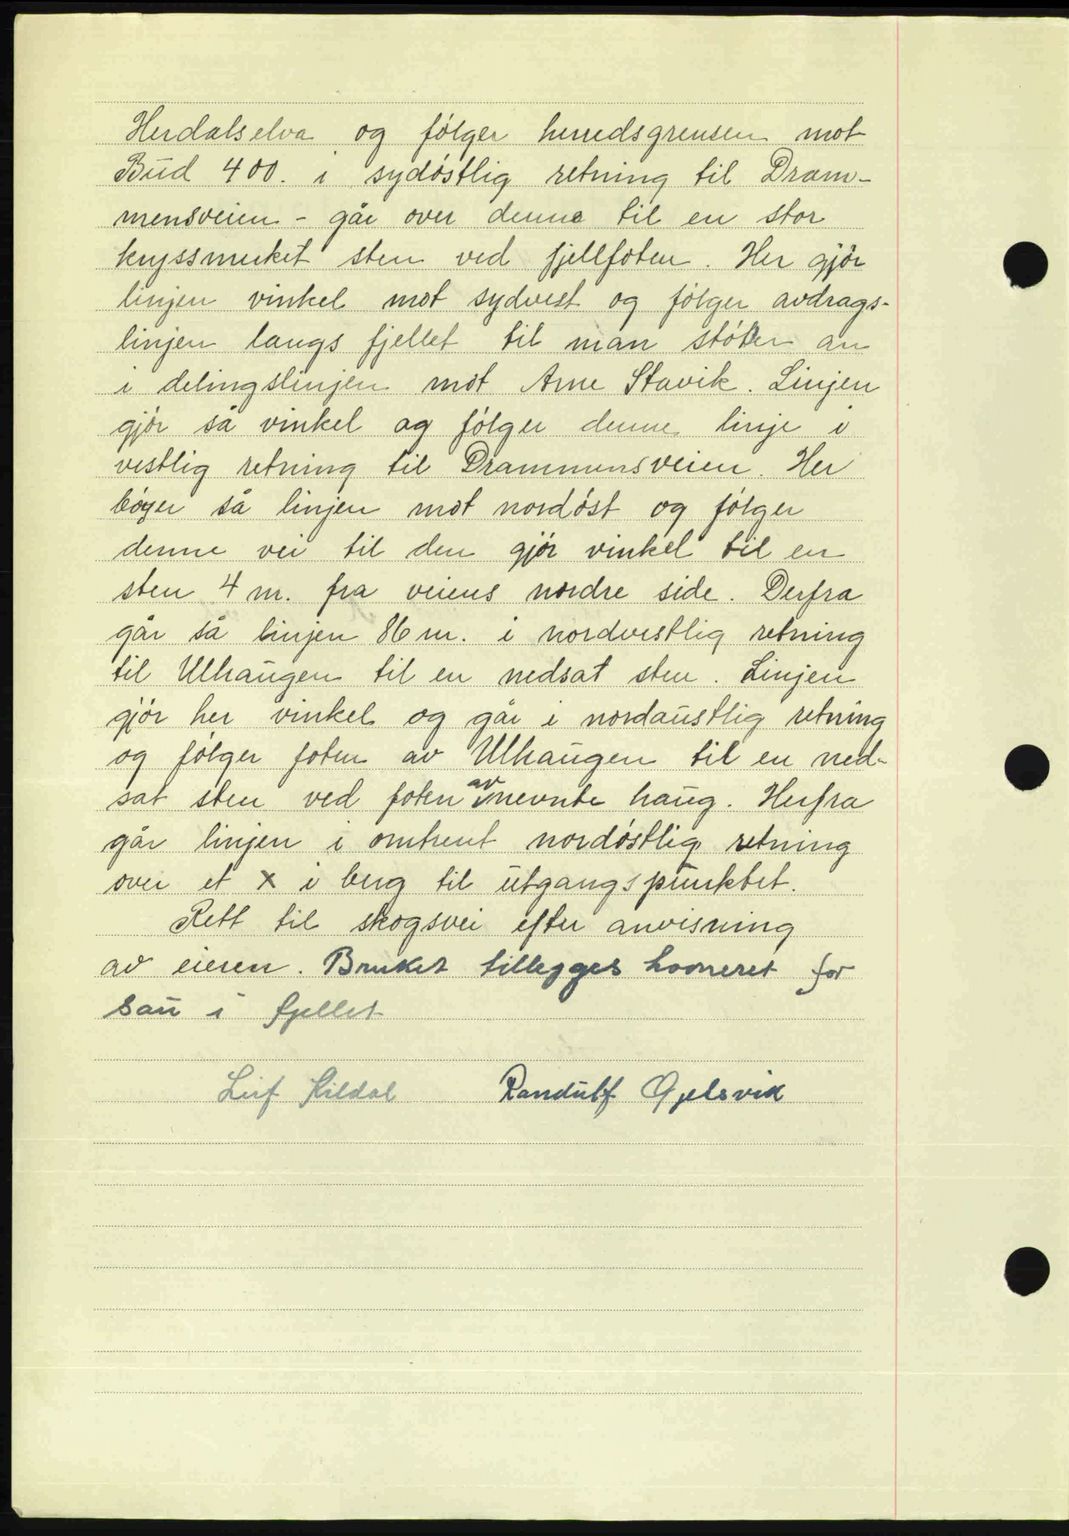 Herdalselva og følger herredsgrensen mot
Bud 400. i sydøstlig retning til Dram-
mensveien - går over denne til en stor
kryssmerket sten ved fjellfoten. Her gjør
linjen vinkel mot sydvest og følger avdrags-
linjen langs fjellet til man støter an
i delingslinjen mot Arne Stavik. Linjen
gjør så vinkel og følger denne linje i
vestlig retning til Drammensveien. Her
bøyer så linjen mot nordøst og følger
denne vei til den gjør vinkel til en
sten 4 m. fra veiens nordre side. Derfra
går så linjen 86 m. i nordvestlig retning
til Ulhaugen til en nedsat sten. Linjen
gjør her vinkel og går i nordaustlig retning
og følger foten av Ulhaugen til en ned-
sat sten ved foten av nevnte haug. Herfra
går linjen i omtrent nordøstlig retning
over et x i berg til utgangspunktet.
Rett til skogsvei efter anvisning
av eieren. Bruket tillegges havneret for
sau i fjellet
Leif Kildal Randulf Gjelsvik